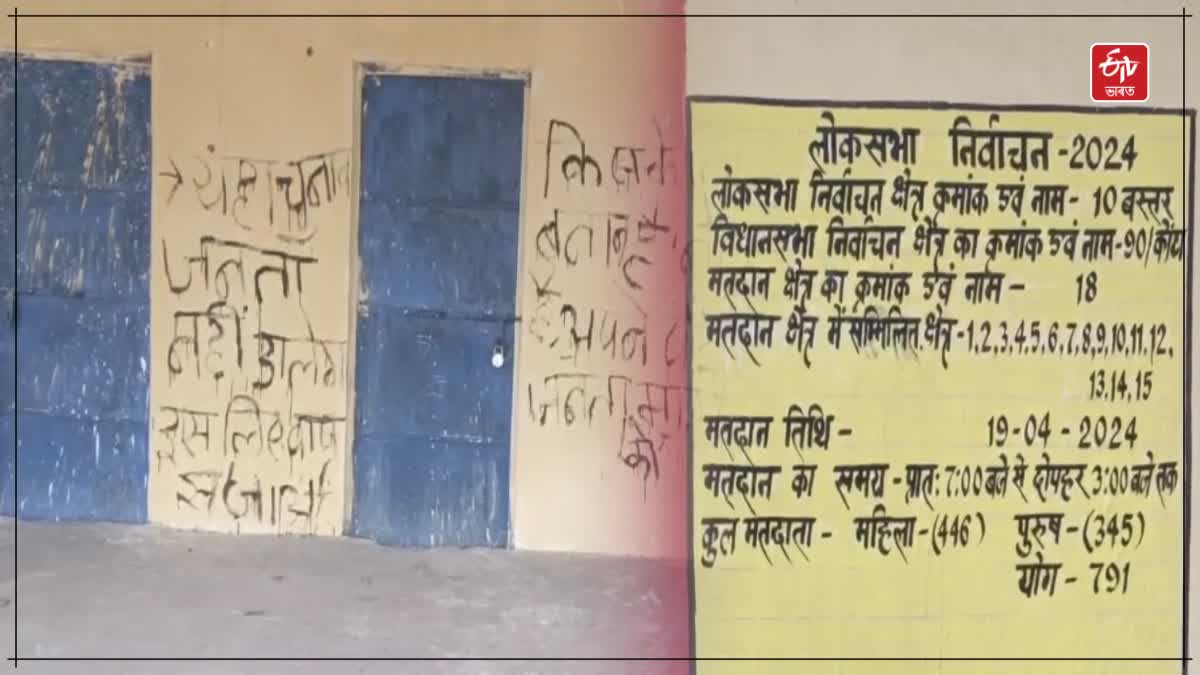 → यहा चुनाव
जनता
नही डालेगा
इस लिए वाप
स जाओ
कि
बताने
है अपने
जनता
को
ETV
ভাৰত
लोकसभा निर्वाचन -2024
लोकसभा निर्वाचन क्षेत्र क्रमांक एवं नाम - 10 बस्तर
विधानसभा निर्वाचन क्षेत्र का क्रमांक एवं नाम-90/कोंटा
मतदान क्षेत्र का क्रमांक एवं नाम - 18
मतदान क्षेत्र में सम्मिलित क्षेत्र -1,2,3,4,5,6,7,8,9,10,11,12,
13,14,15
मतदान तिथि - 19-04-2024
मतदान का समय -प्रात: 7:00 बजे से दोपहर 3:00 बजे तक
कुल मतदाता - महिला-(446) पुरुष-(345)
योग - 791